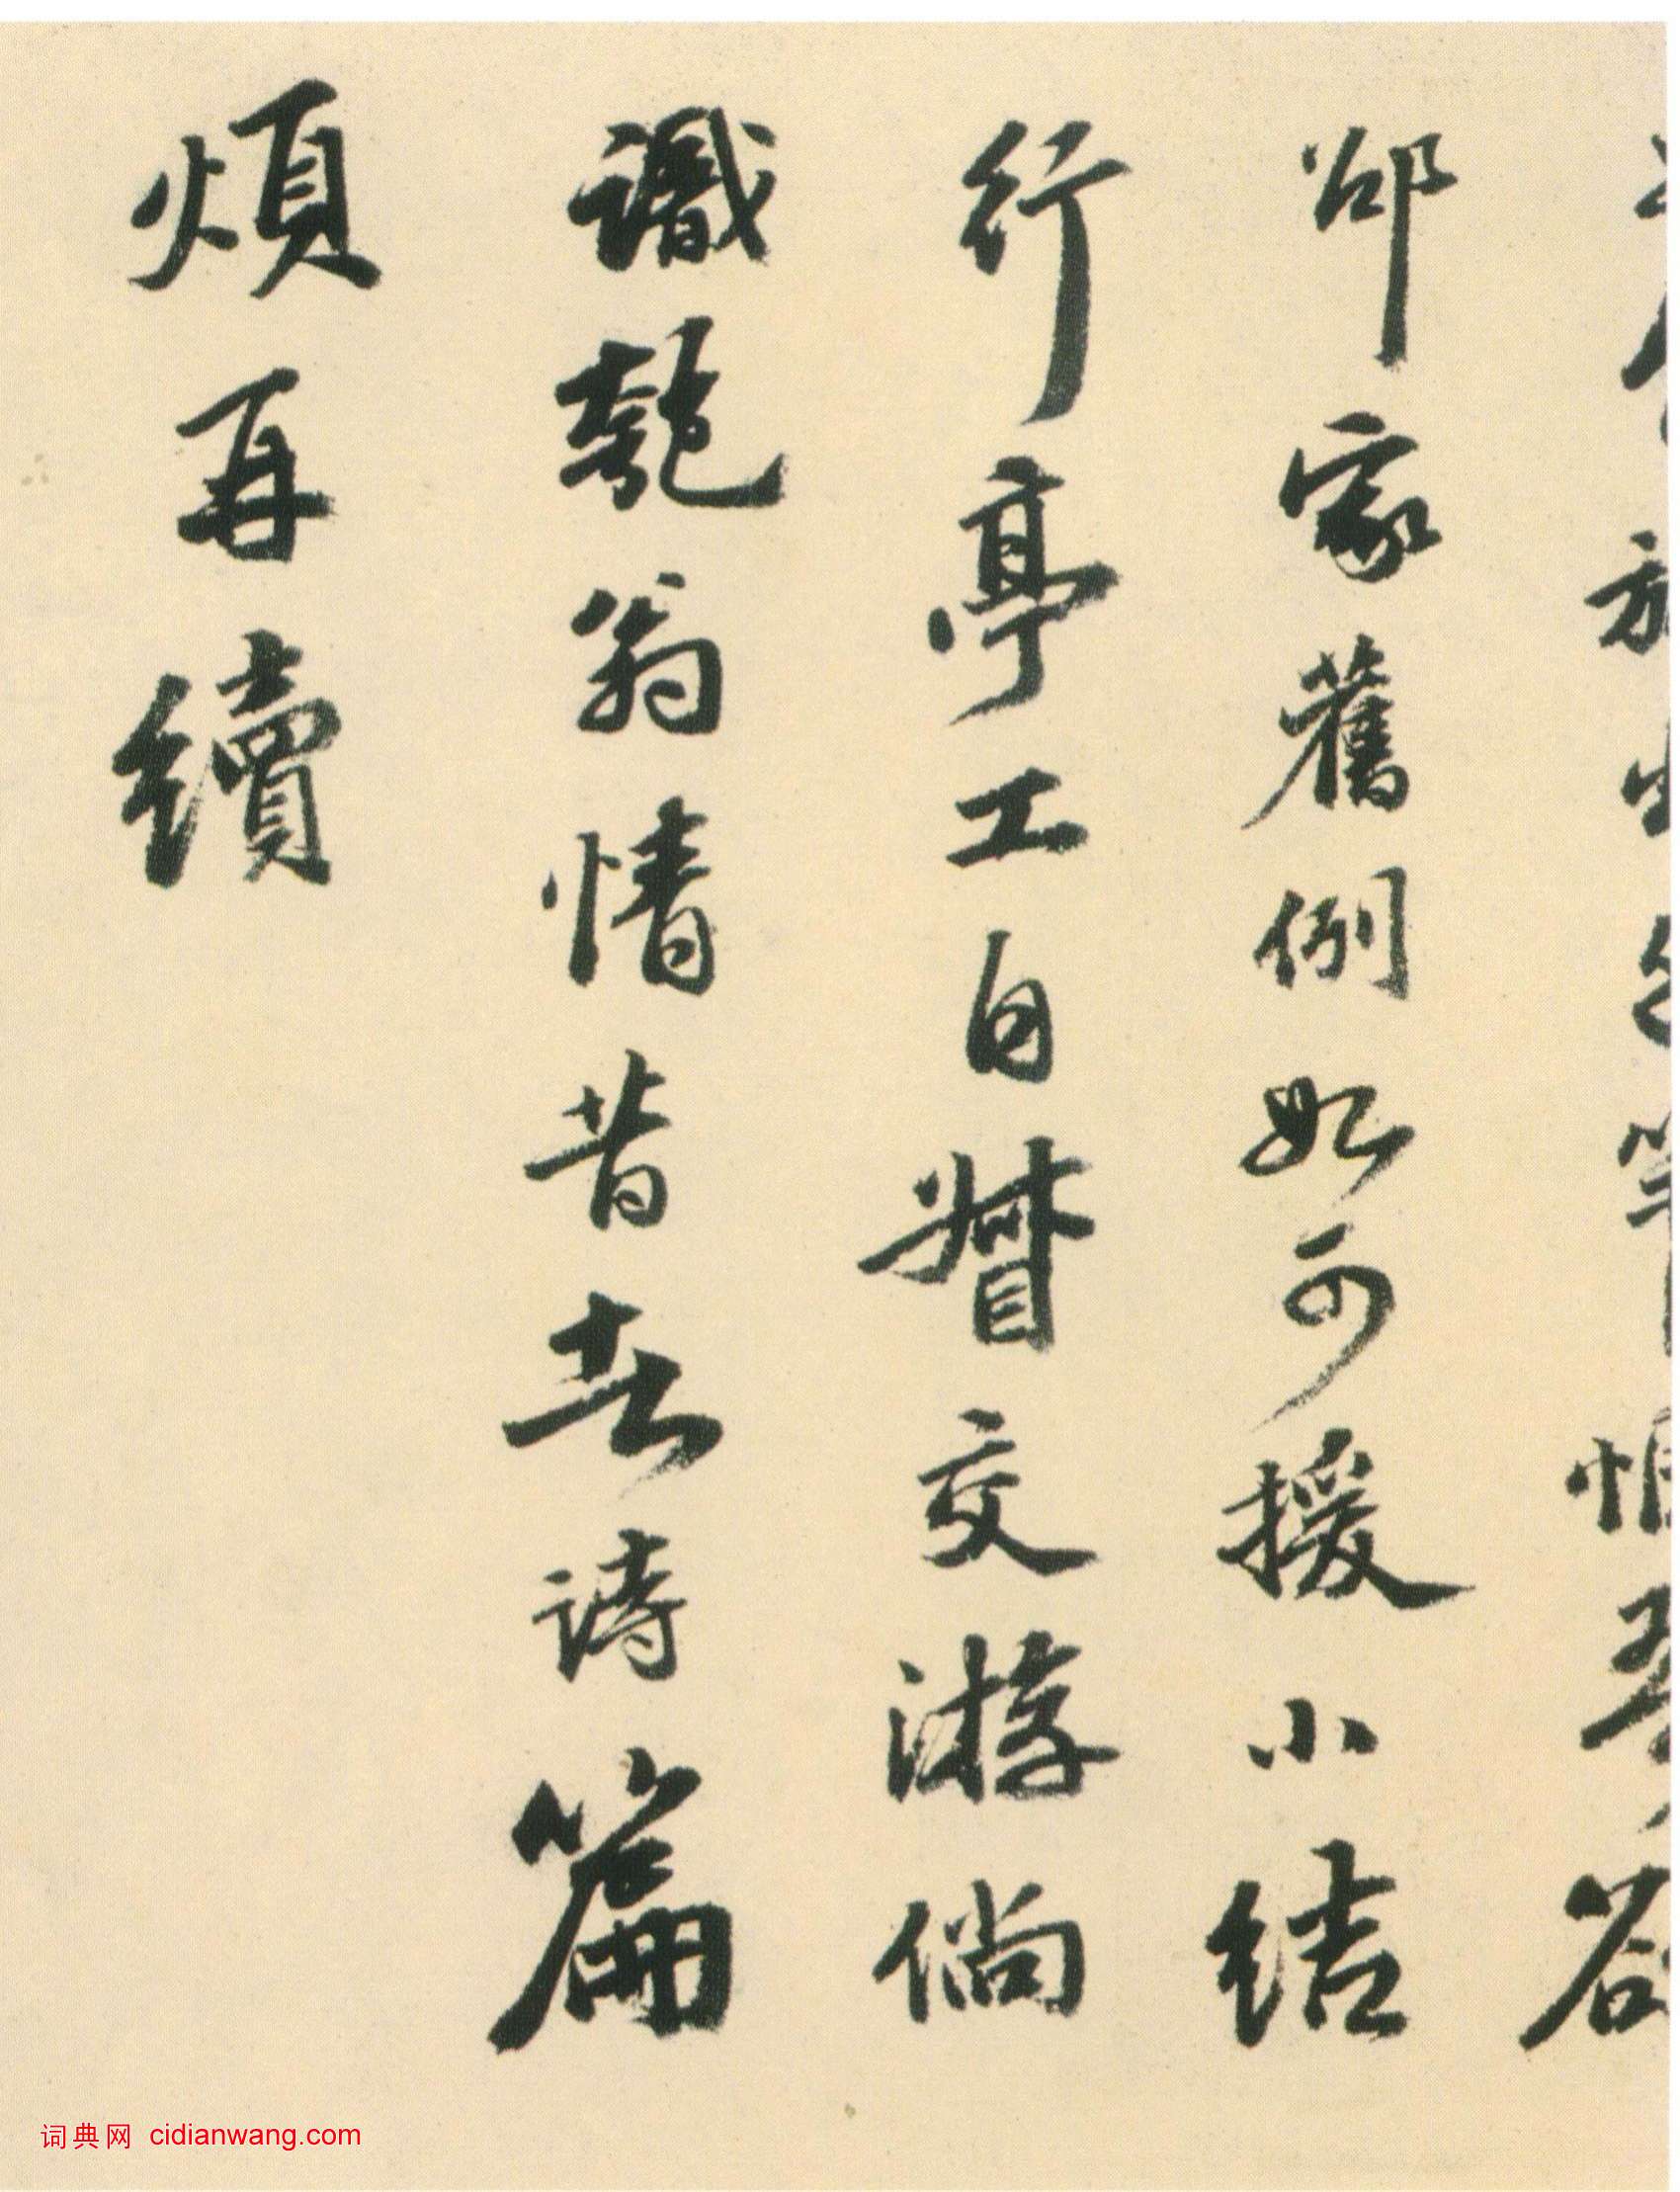 邵家舊例如可援小結
行亭工自督交游倘
識匏翁情昔去詩篇
煩再續
词典网 cidianwang.com